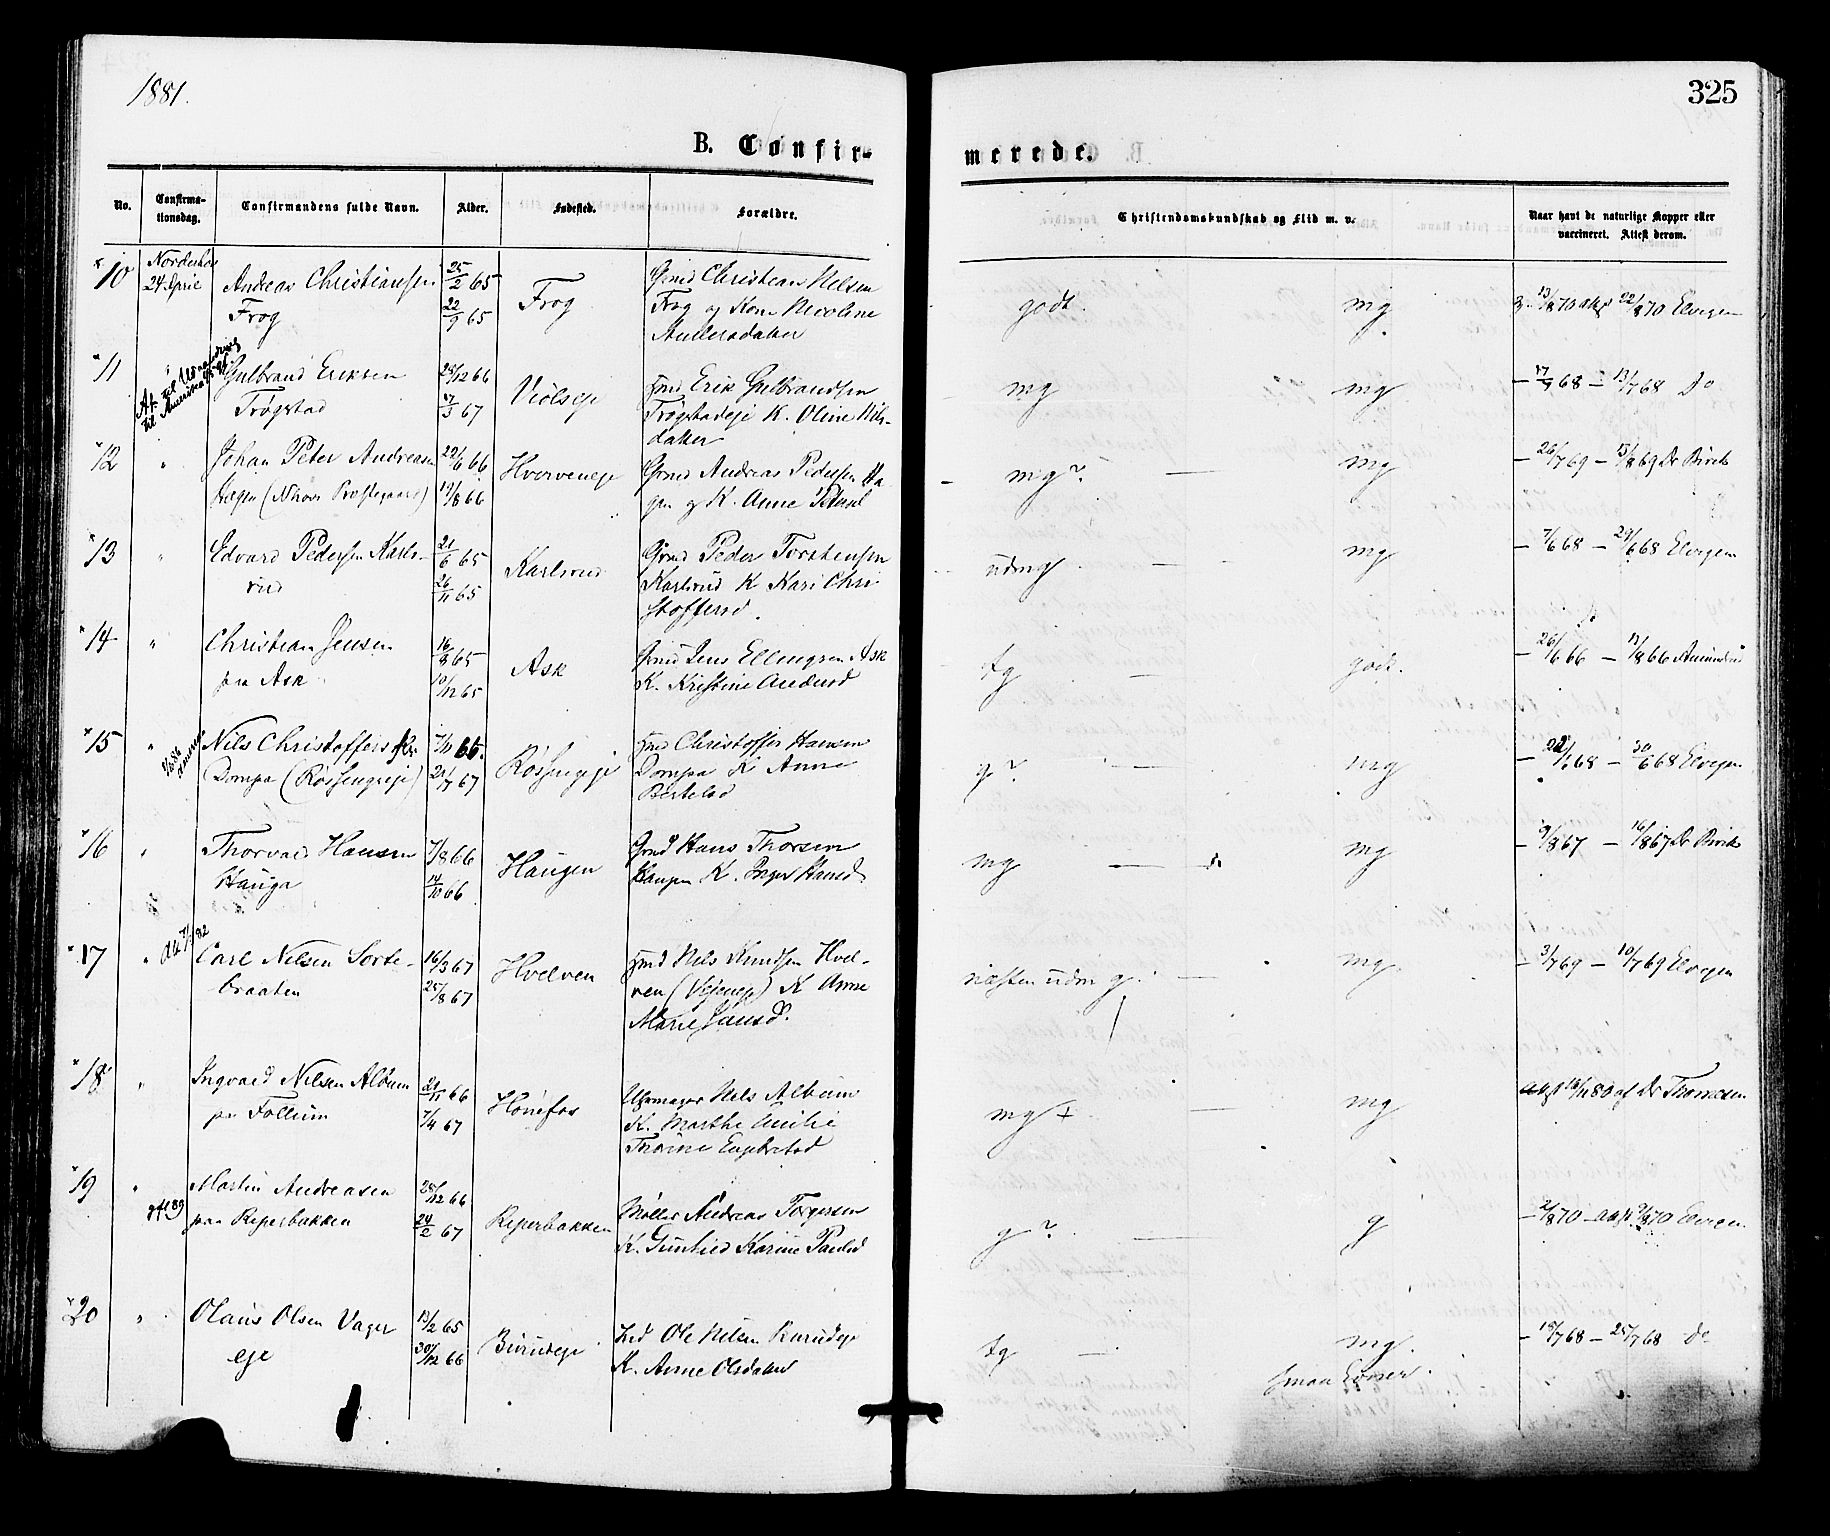 1881.
325
B. Confir-
merede.
No.
Confirma-
tionsdag.
Confirmandens fulde Navn.
Alder.
Fødested.
Forældre.
Christendomskundskab og Flid m. v.
Naar havt de naturlige Kopper eller
vaccineret. Attest derom.
10
Norderhov
24 April
Andreas Christiansen
Frog
25/2 65
22/9 65
Frog
Gmd Christian Nilsen
Frog og Kone Nicoline
Andersdatter
godt.
mg
13/8 70 att 22/8 70 Elvigen
11
"
At. til Udvandring
til Amerika
Gulbrand Eriksen
Trøgstad
28/12 66
17/3 67
Violseje
Hmd Erik Gulbrandsen
Trøgstadeje K. Oline Nils-
datter
mg
mg
17/7 68 — 13/7 68 Do
12
"
Johan Peter Andreasen
Hagen (Nhovs Præstegaard)
22/6 66
19/8 66
Hverveneje
Gmd Andreas Pedersen Ha
gen og K. Anne
mg?
mg
— 26/7 69 — 5/8 69 Dr
13
"
Edvard Pedersen Karls-
rud
21/6 65
26/11 65
Karlsrud
Gmd Peder Torstensen
Karlsrud K Kari Chri
stoffersd.
udmg
mg
— 7/6 68 — 24/6 68 Elvigen
14
"
Christian Jensen
paa Ask
16/8 65
10/12 65
Ask
Gmd Jens Ellingsen Ask
K. Kristine Andersd
tg
godt.
— 26/6 66 — 13/8 66
15
"
Nils Christoffersen
Dompa (Røssengseje)
7/11 65.
21/7 67
Røssengeje
Hmd Christoffer Hansen
Dompa K Anne
Bertelsd
g?
mg
68 — 30/6 68 Elvigen
16
"
Thorvald Hansen
Hauga
7/8 66
14/10 66
Haugen
Gmd Hans Thorsen
Haugen K. Inger Hansd
mg
mg
— 9/8 67 — 16/8 67 Dr
17
"
Carl Nilsen Sorte-
braaten
16/3 67
25/8 67
Hvelven
Hmd Nils Knudsen Hvel-
ven (Vejeneje) K Anne
Marie Jansd.
næsten udm g.
mg
— 3/7 69 — 10/7 69 Elvigen
18
"
Ingvald Nilsen Album
paa Follum
21/11 66
7/4 67
Hønefos
Uhrmager Nils Album
K. Marthe Emilie
Thorine Engebretsd
mg +
mg
att 16/11 80 af Dr Thomesen
19
"
Martin Andreasen
paa Reperbakken
28/12 66
24/2 67
Reperbakken
Møller Andreas Torgersen
K. Gunhild Karine Paulsd
g?
g
— 2/8 70 — att 9/8 70 Elvigen
20
"
Olaus Olsen Vager
eje
13/2 65
30/12 66
Burudeje
Ind Ole Nilsen Burudeje
K. Anne Olsdatter
tg
mg.
smaa Evner.
— 18/7 68 — 25/7 68 Do